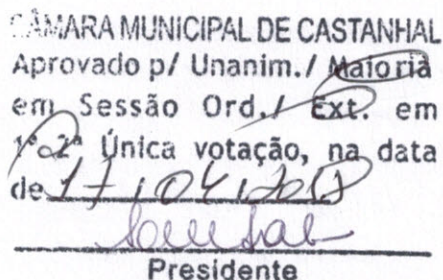 CÂMARA MUNICIPAL DE CASTANHAL
Aprovado p/ Unanim./ Maioria
em Sessão Ord./ Ext. em
1ª 2ª Única votação, na data
de 17/04/2017
Presidente